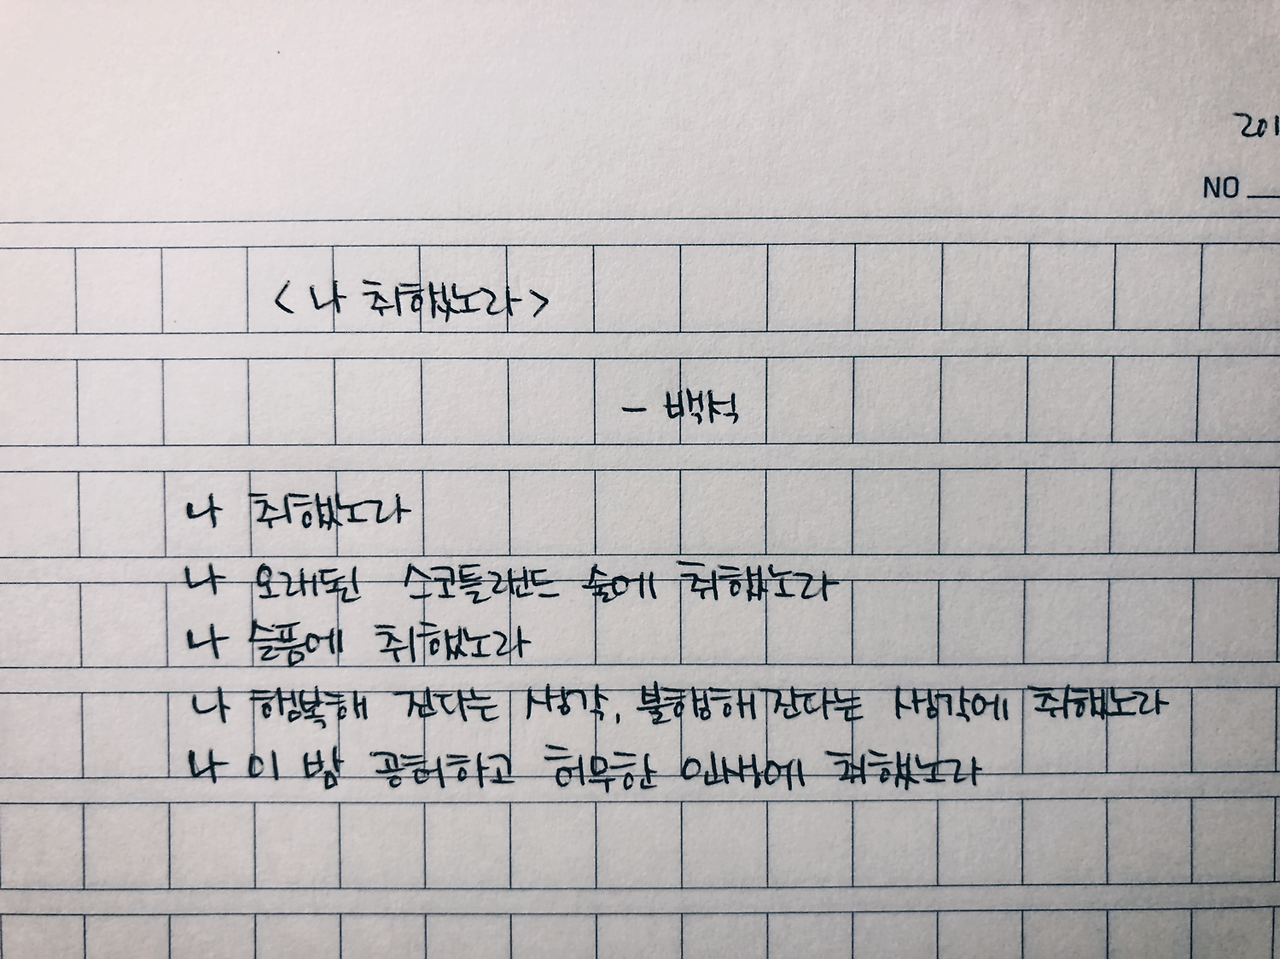 201
NO
<나 취했노라>
- 백석
나 취했노라
나 오래된 스코틀랜드 술에 취했노라
나 슬픔에 취했노라
나 행복해 진다는 생각, 불행해 진다는 생각에 취했노라
나 이 밤 공허하고 허무한 인생에 취했노라